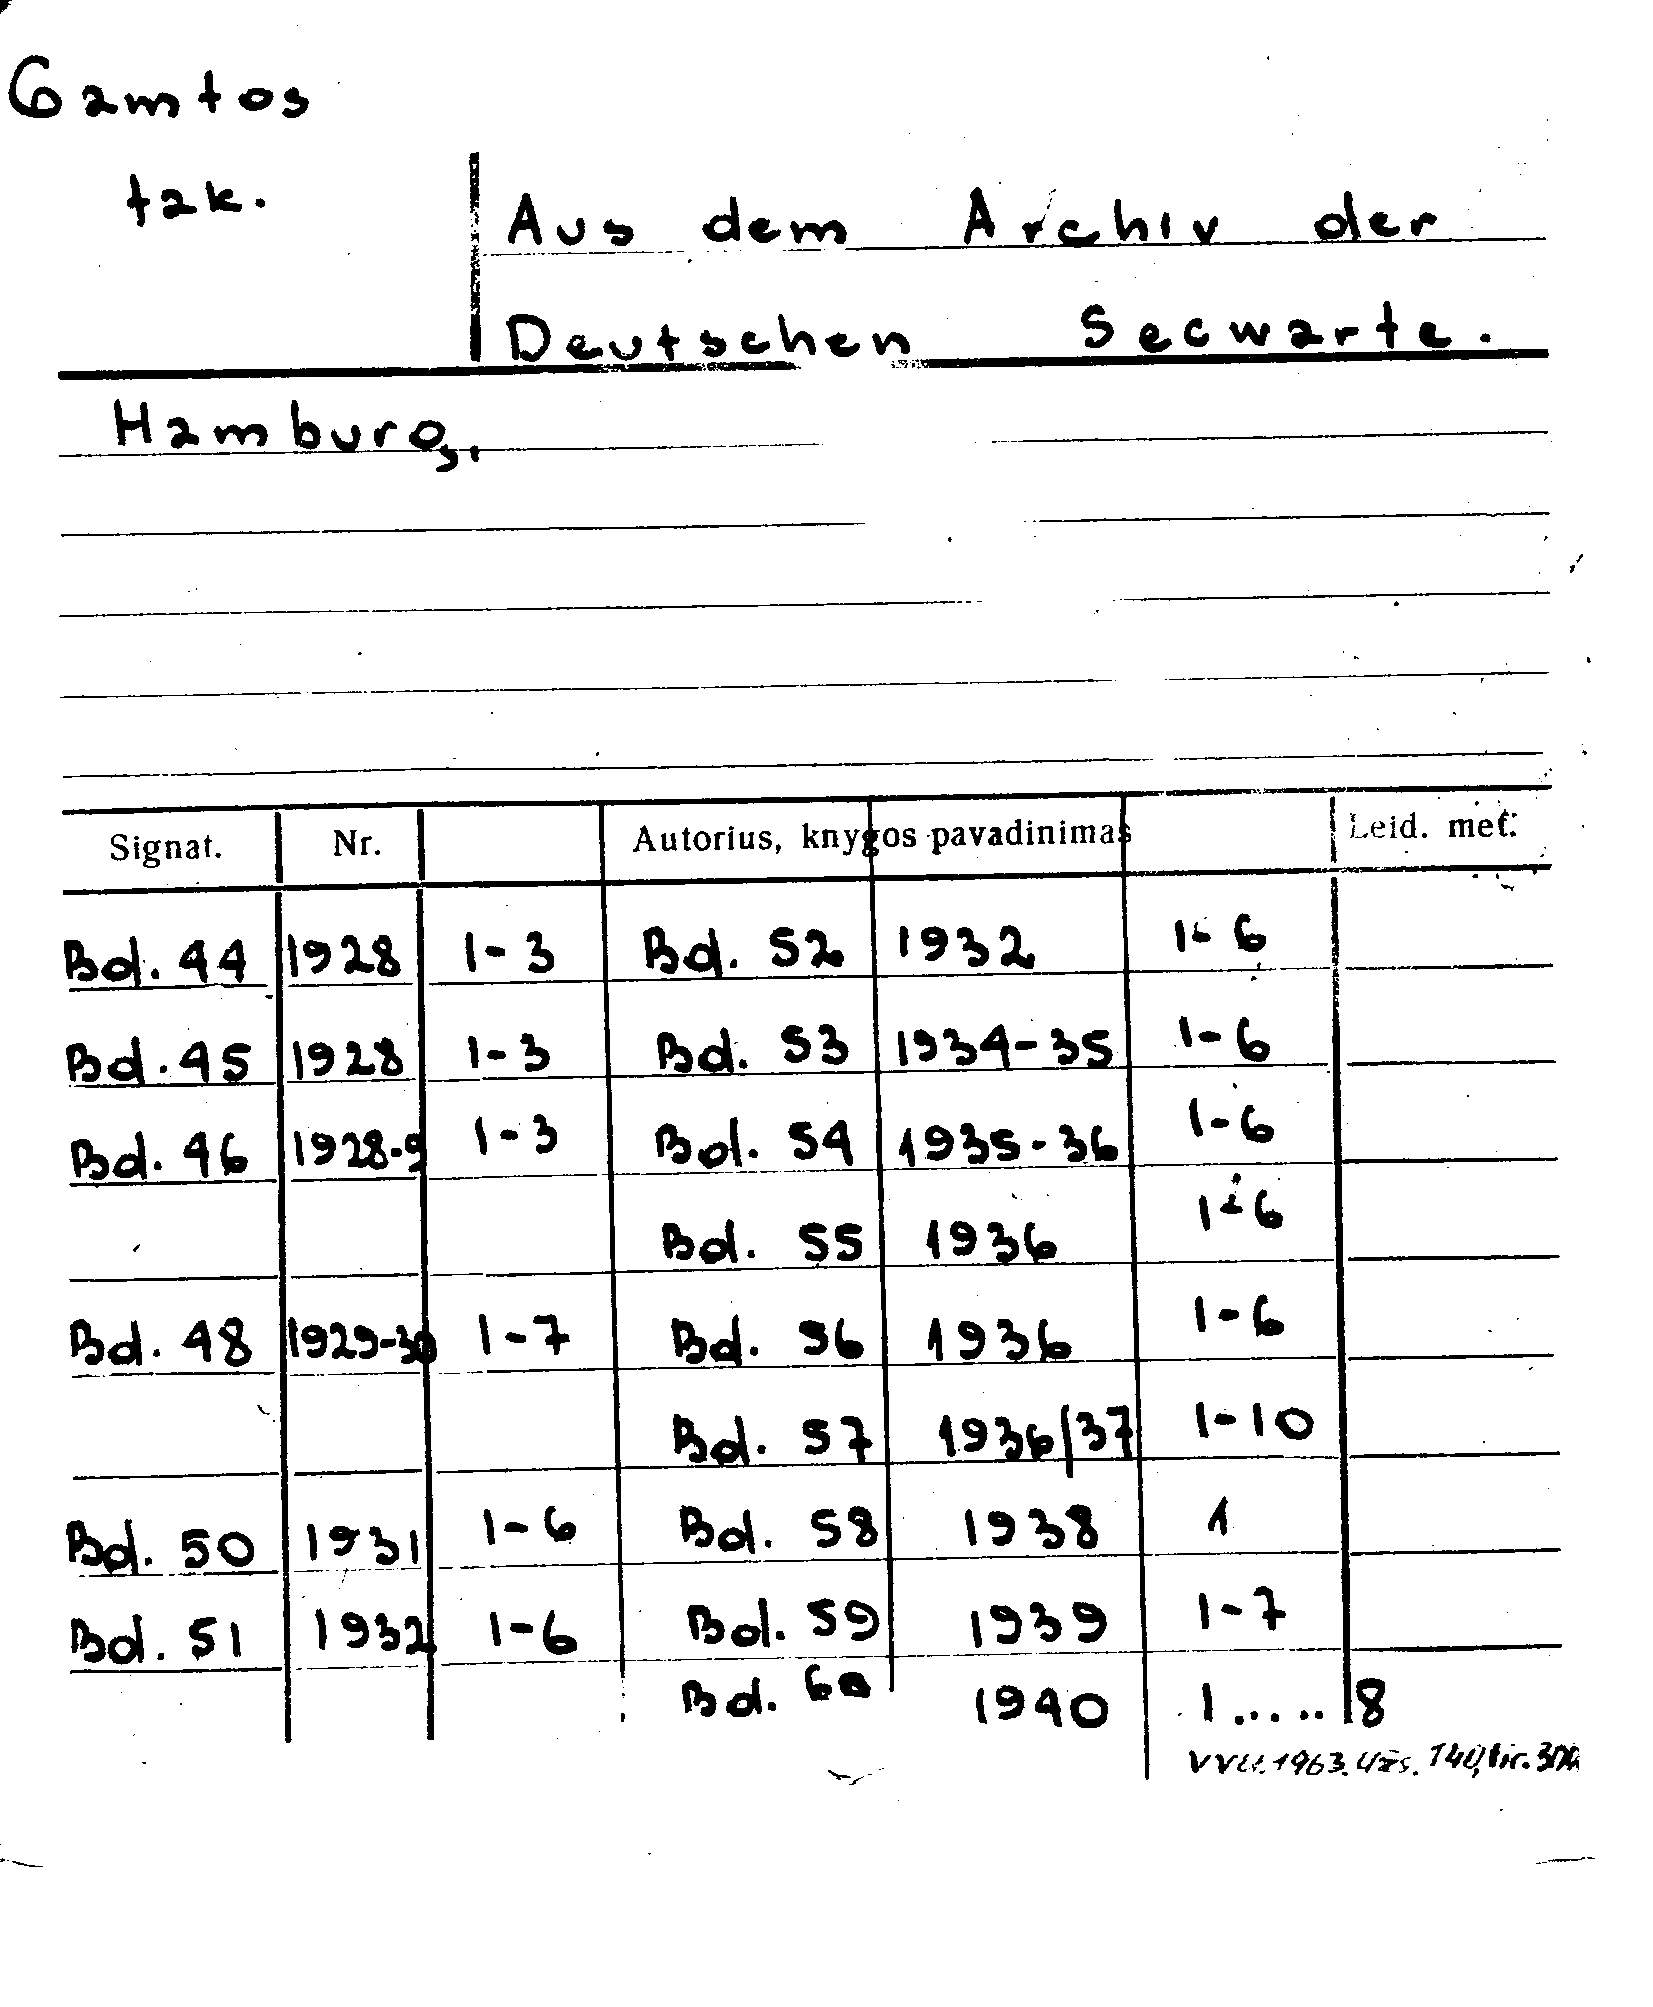 Gamtos
tak.
Aus dem Archiv der
Deutschen Secwarte.
Hamburg.
Signat. Nr. Autorius, knygos pavadinimas Leid. met.
Bd. 44 1928 1-3 Bd. 52 1932 1-6
Bd. 45 1928 1-3 Bd. 53 1934-35 1-6
Bd. 46 1928-9 1-3 Bd. 54 1935-36 1-6
Bd. 55 1936 1-6
Bd. 48 1929-30 1-7 Bd. 56 1936 1-6
Bd. 57 1936/37 1-10
Bd. 50 1931 1-6 Bd. 58 1938 1
Bd. 51 1932 1-6 Bd. 59 1939 1-7
Bd. 60 1940 1..... 8
VVU. 1963. Užs. 140, tir.